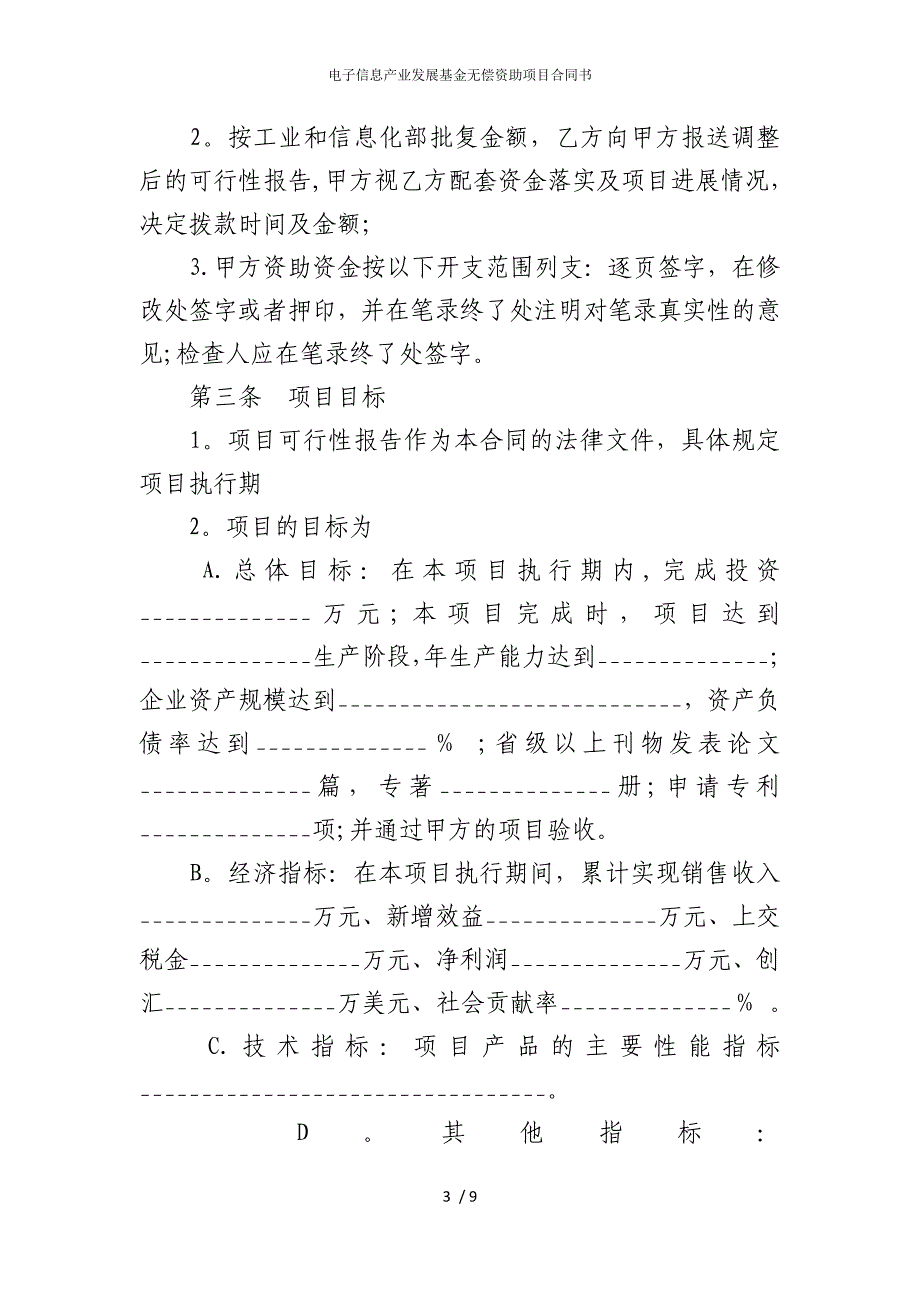 电子信息产业发展基金无偿资助项目合同书
2。按工业和信息化部批复金额，乙方向甲方报送调整
后的可行性报告,甲方视乙方配套资金落实及项目进展情况，
决定拨款时间及金额;
3.甲方资助资金按以下开支范围列支：逐页签字，在修
改处签字或者押印，并在笔录终了处注明对笔录真实性的意
见;检查人应在笔录终了处签字。
第三条　项目目标
1。项目可行性报告作为本合同的法律文件，具体规定
项目执行期
2。项目的目标为
A.总体目标：在本项目执行期内,完成投资
______________万元;本项目完成时，项目达到
______________生产阶段,年生产能力达到______________;
企业资产规模达到____________________________，资产负
债率达到______________% ;省级以上刊物发表论文
______________篇，专著______________册;申请专利
______________项;并通过甲方的项目验收。
B。经济指标：在本项目执行期间，累计实现销售收入
______________万元、新增效益______________万元、上交
税金______________万元、净利润______________万元、创
汇______________万美元、社会贡献率______________% 。
C.技术指标：项目产品的主要性能指标
_________________________________。
D。其他指标：
3 / 9